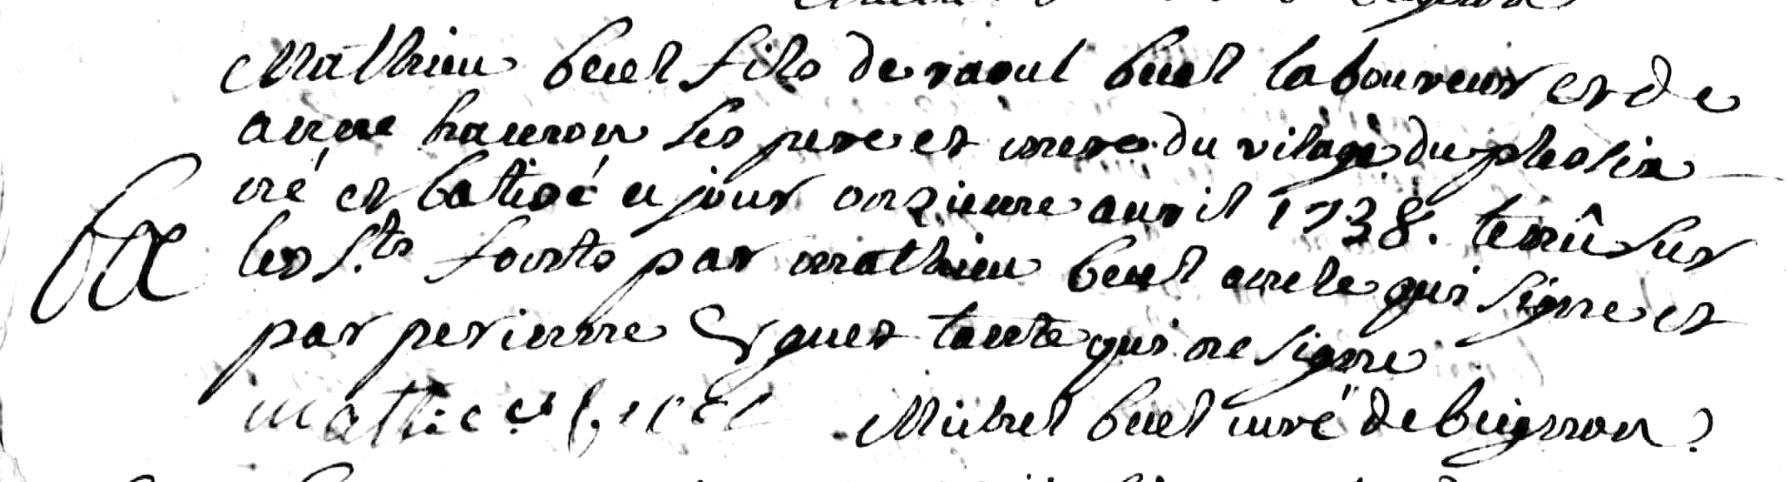 Mathieu buel fils de raoul buel laboureur et de
anne hamon ses pere et mere du vilage du plesix
né et batisé ce jour onzieme avril 1738. tenû sur
les s.ts fonts par mathieu buel oncle qui signe et
par perinne guet tante qui ne signe
mathieu buel Michel buel curé de buignon